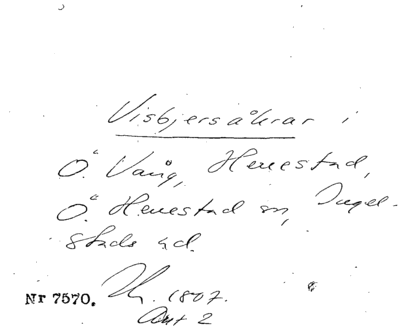 Visbjersåkrar i
Ö. Vång, Henestad,
Ö. Henestad sn, Ingel-
stads hd.
Nr 7570. 1807.
Akt 2